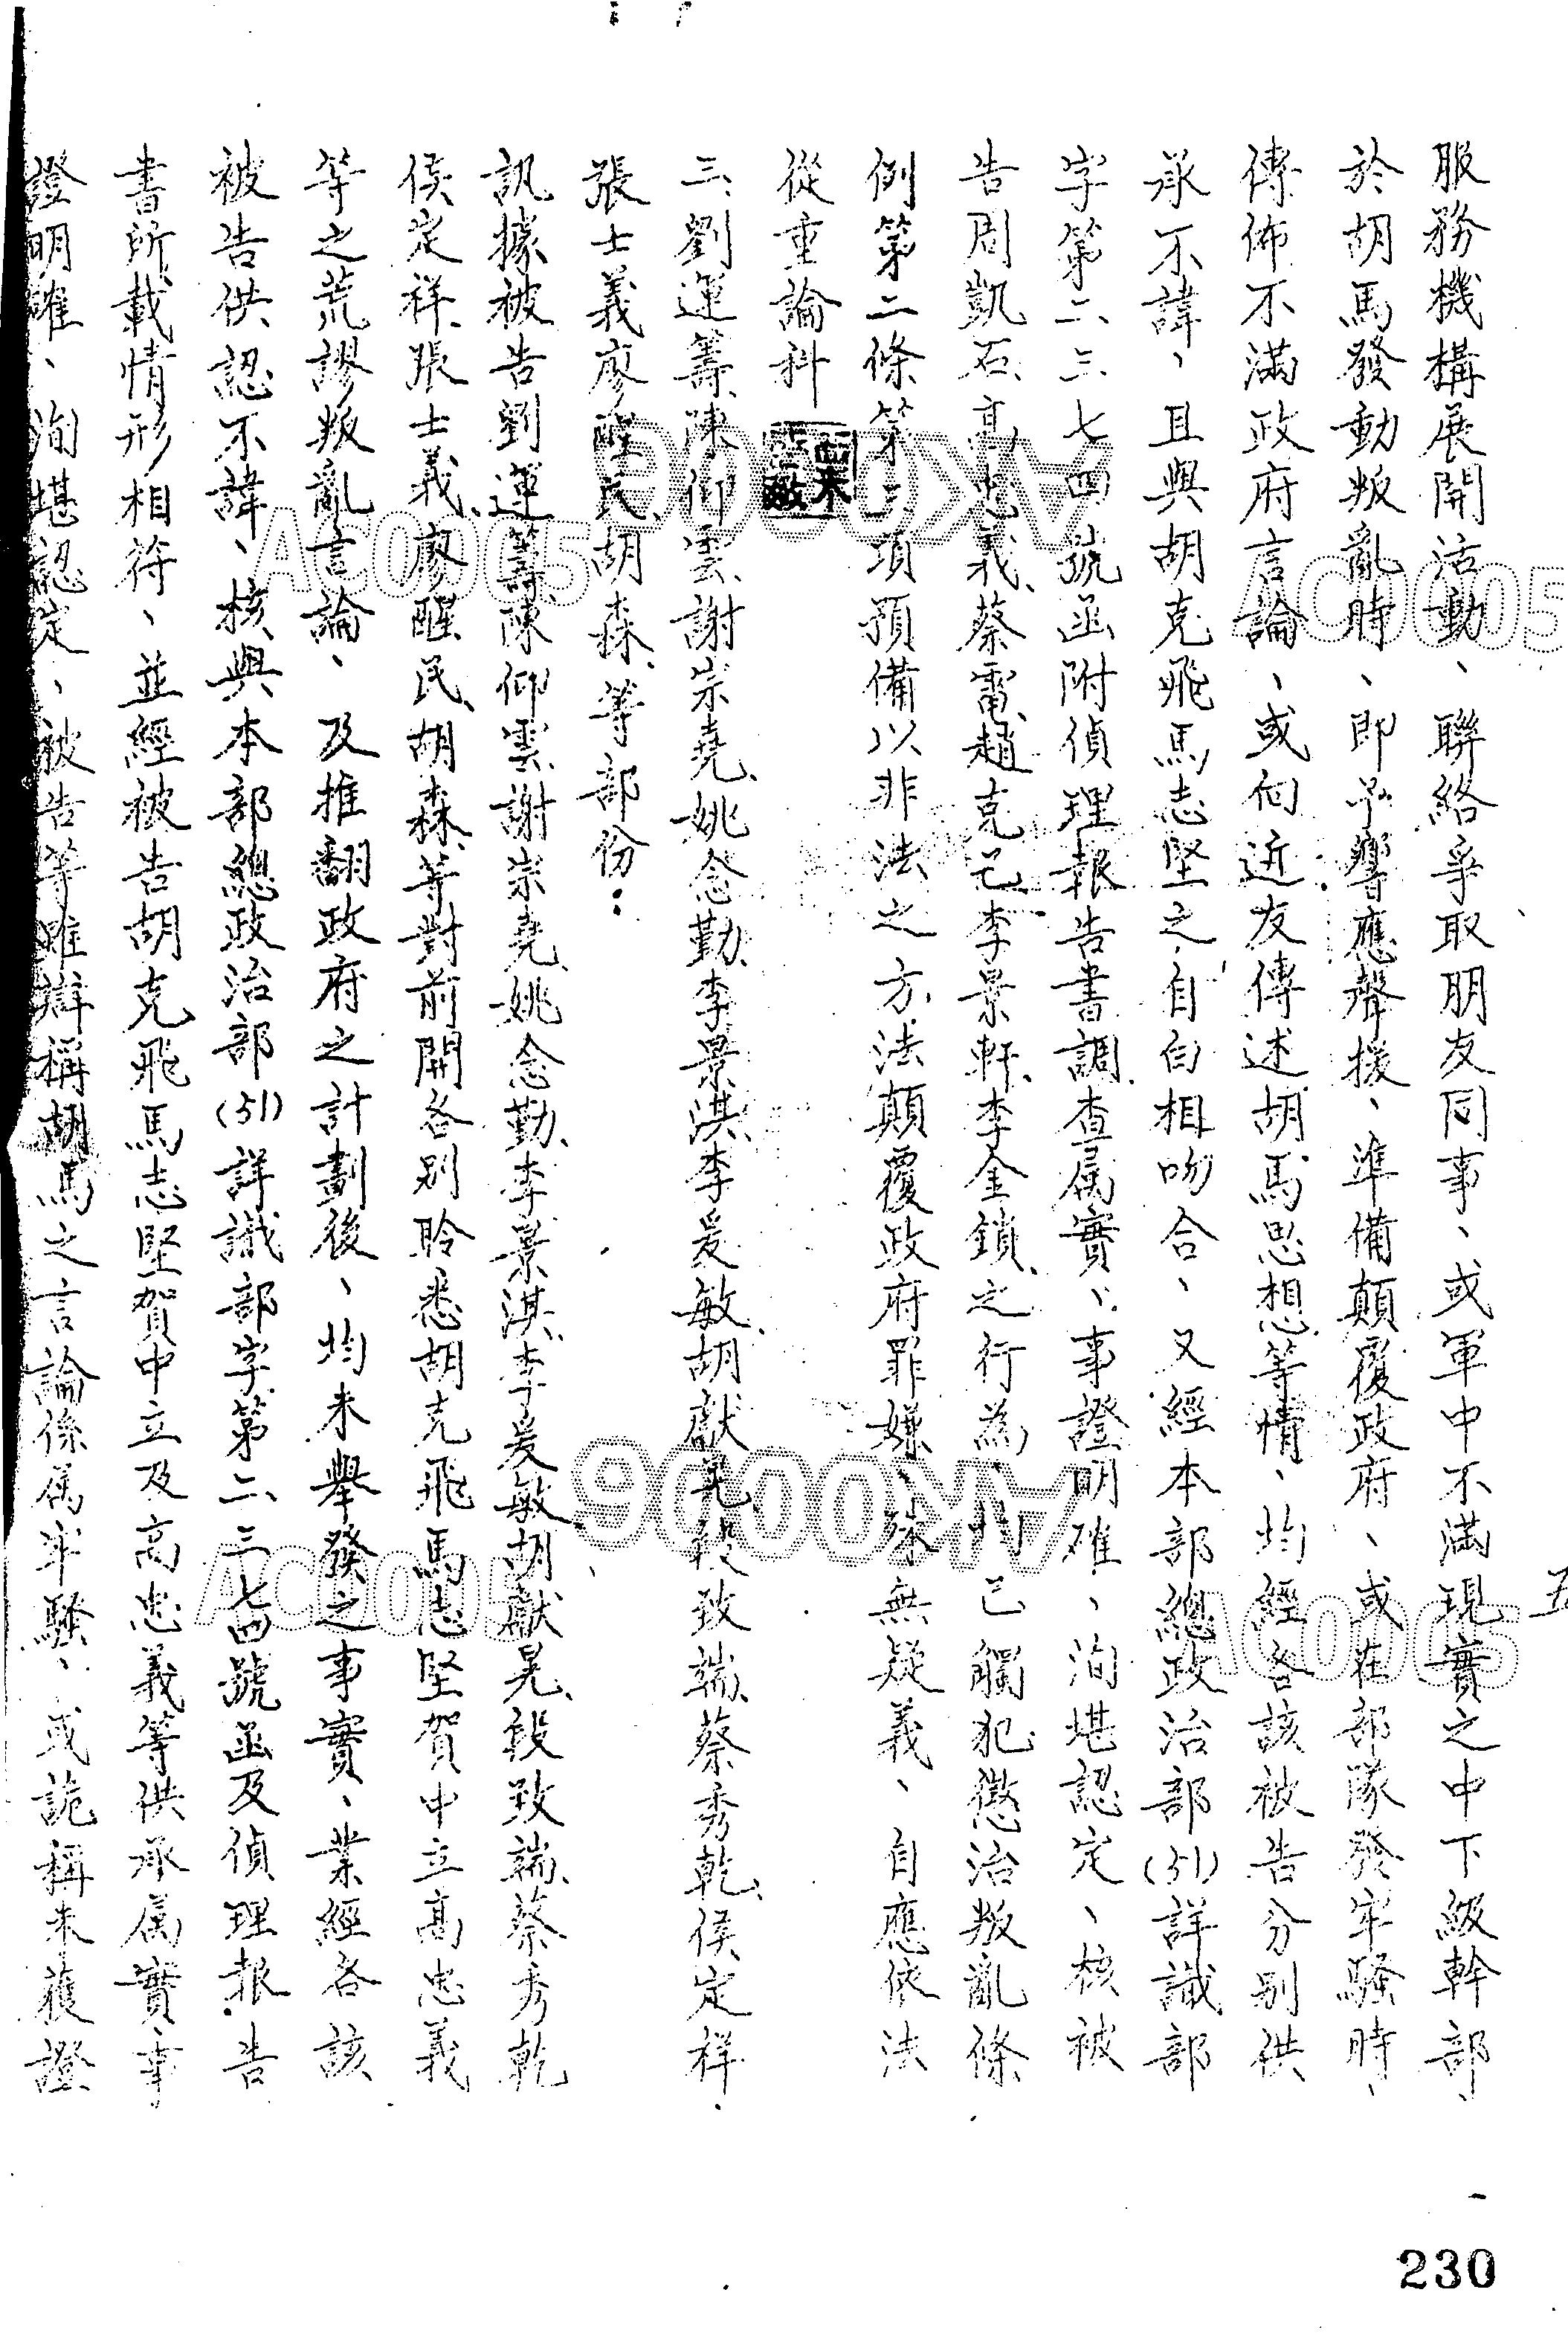 五
服務機構展開活動、聯絡爭取朋友同事、或軍中不滿現實之中下級幹部、
於胡馬發動叛亂時、即予響應聲援、準備顛覆政府、或在部隊發牢騷時、
傳佈不滿政府言論、或向近友傳述胡馬思想等情、均經各該被告分別供
承不諱、且與胡克飛馬志堅之自白相吻合、又經本部總政治部(51)詳識部
字第二三七四號函附偵理報告書調查属實、事證明確、洵堪認定、核被
告周凱石、高忠義、蔡雷、趙克己、李景軒、李金鎖、之行為、均已觸犯懲治叛亂條
例第二條第三項預備以非法之方法顛覆政府罪嫌、殊無疑義、自應依法
從重論科
三、劉運籌、陳仰雲、謝崇堯、姚念勤、李景淇、李爰敏、胡獻晃、段致端、蔡秀乾、侯定祥、
張士義、廖醒民、胡森、等部份：
訊據被告劉運籌、陳仰雲、謝崇堯、姚念勤、李景淇、李爰敏、胡獻晃、段致端、蔡秀乾
侯定祥、張士義、廖醒民、胡森、等對前開各別聆悉胡克飛馬志堅賀中立高忠義
等之荒謬叛亂言論、及推翻政府之計劃後、均未舉發之事實、業經各該
被告供認不諱、核與本部總政治部(51)詳識部字第二三七四號函及偵理報告
書所載情形相符、並經被告胡克飛馬志堅賀中立及高忠義等供承属實、事
證明確、洵堪認定、被告等雖辯稱胡馬之言論係属牢騷、或詭稱未獲證
230
AK0006
AC0005
AC0005
AK0006
AC0005
AC0005